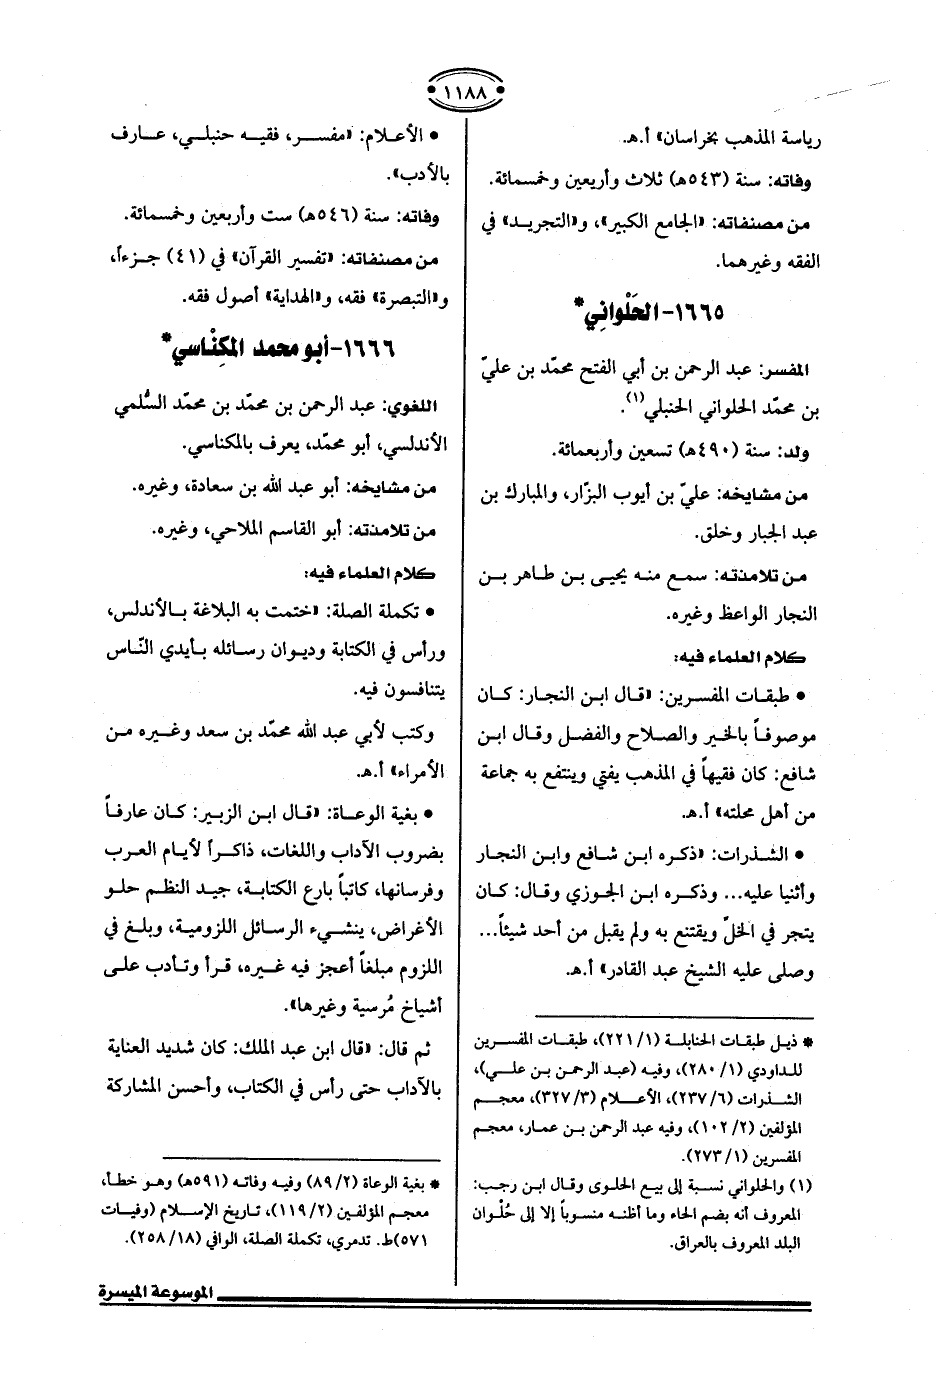 ١١٨٨
رياسة المذهب بخراسان» أ.هـ.
وفاته: سنة (٥٤٣هـ) ثلاث وأربعين وخمسمائة.
من مصنفاته: «الجامع الكبير»، و«التجريد» في
الفقه وغيرهما.
١٦٦٥- الحَلْواني*
المفسر: عبد الرحمن بن أبي الفتح محمّد بن عليّ
بن محمّد الحلواني الحنبلي(١).
ولد: سنة (٤٩٠هـ) تسعين وأربعمائة.
من مشايخه: عليّ بن أيوب البزّار، والمبارك بن
عبد الجبار وخلق.
من تلامذته: سمع منه يحيى بن طاهر بن
النجار الواعظ وغيره.
كلام العلماء فيه:
• طبقات المفسرين: «قال ابن النجار: كان
موصوفاً بالخير والصلاح والفضل وقال ابن
شافع: كان فقيهاً في المذهب يفتي وينتفع به جماعة
من أهل محلته» أ.هـ.
• الشذرات: «ذكره ابن شافع وابن النجار
وأثنيا عليه... وذكره ابن الجوزي وقال: كان
يتجر في الخلّ ويقتنع به ولم يقبل من أحد شيئاً...
وصلى عليه الشيخ عبد القادر» أ.هـ.
* ذيل طبقات الحنابلة (١/ ٢٢١)، طبقات المفسرين
للداودي (١/ ٢٨٠)، وفيه (عبد الرحمن بن علي)،
الشذرات (٦/ ٢٣٧)، الأعلام (٣/ ٣٢٧)، معجم
المؤلفين (٢/ ١٠٢)، وفيه عبد الرحمن بن عمار، معجم
المفسرين (١/ ٢٧٣).
(١) والحلواني نسبة إلى بيع الحلوى وقال ابن رجب:
المعروف أنه بضم الحاء وما أظنه منسوباً إلا إلى حُلْوان
البلد المعروف بالعراق.
• الأعلام: «مفسر، فقيه حنبلي، عارف
بالأدب».
وفاته: سنة (٥٤٦هـ) ست وأربعين وخمسمائة.
من مصنفاته: «تفسير القرآن» في (٤١) جزءاً،
و«التبصرة» فقه، و«الهداية» أصول فقه.
١٦٦٦- أبو محمد المكِنْاسي*
اللغوي: عبد الرحمن بن محمّد بن محمّد السُّلمي
الأندلسي، أبو محمّد، يعرف بالمكناسي.
من مشايخه: أبو عبد الله بن سعادة، وغيره.
من تلامذته: أبو القاسم الملاحي، وغيره.
كلام العلماء فيه:
• تكملة الصلة: «ختمت به البلاغة بالأندلس،
ورأس في الكتابة وديوان رسائله بأيدي النّاس
يتنافسون فيه.
وكتب لأبي عبد الله محمّد بن سعد وغيره من
الأمراء» أ.هـ.
• بغية الوعاة: «قال ابن الزبير: كان عارفاً
بضروب الآداب واللغات، ذاكراً لأيام العرب
وفرسانها، كاتباً بارع الكتابة، جيد النظم حلو
الأغراض، ينشيء الرسائل اللزومية، وبلغ في
اللزوم مبلغاً أعجز فيه غيره، قرأ وتأدب على
أشياخ مُرسية وغيرها».
ثم قال: «قال ابن عبد الملك: كان شديد العناية
بالآداب حتى رأس في الكتاب، وأحسن المشاركة
* بغية الوعاة (٢/ ٨٩) وفيه وفاته (٥٩١هـ) وهو خطأ،
معجم المؤلفين (٢/ ١١٩)، تاريخ الإسلام (وفيات
٥٧١)ط. تدمري، تكملة الصلة، الوافي (١٨/ ٢٥٨).
الموسوعة الميسرة